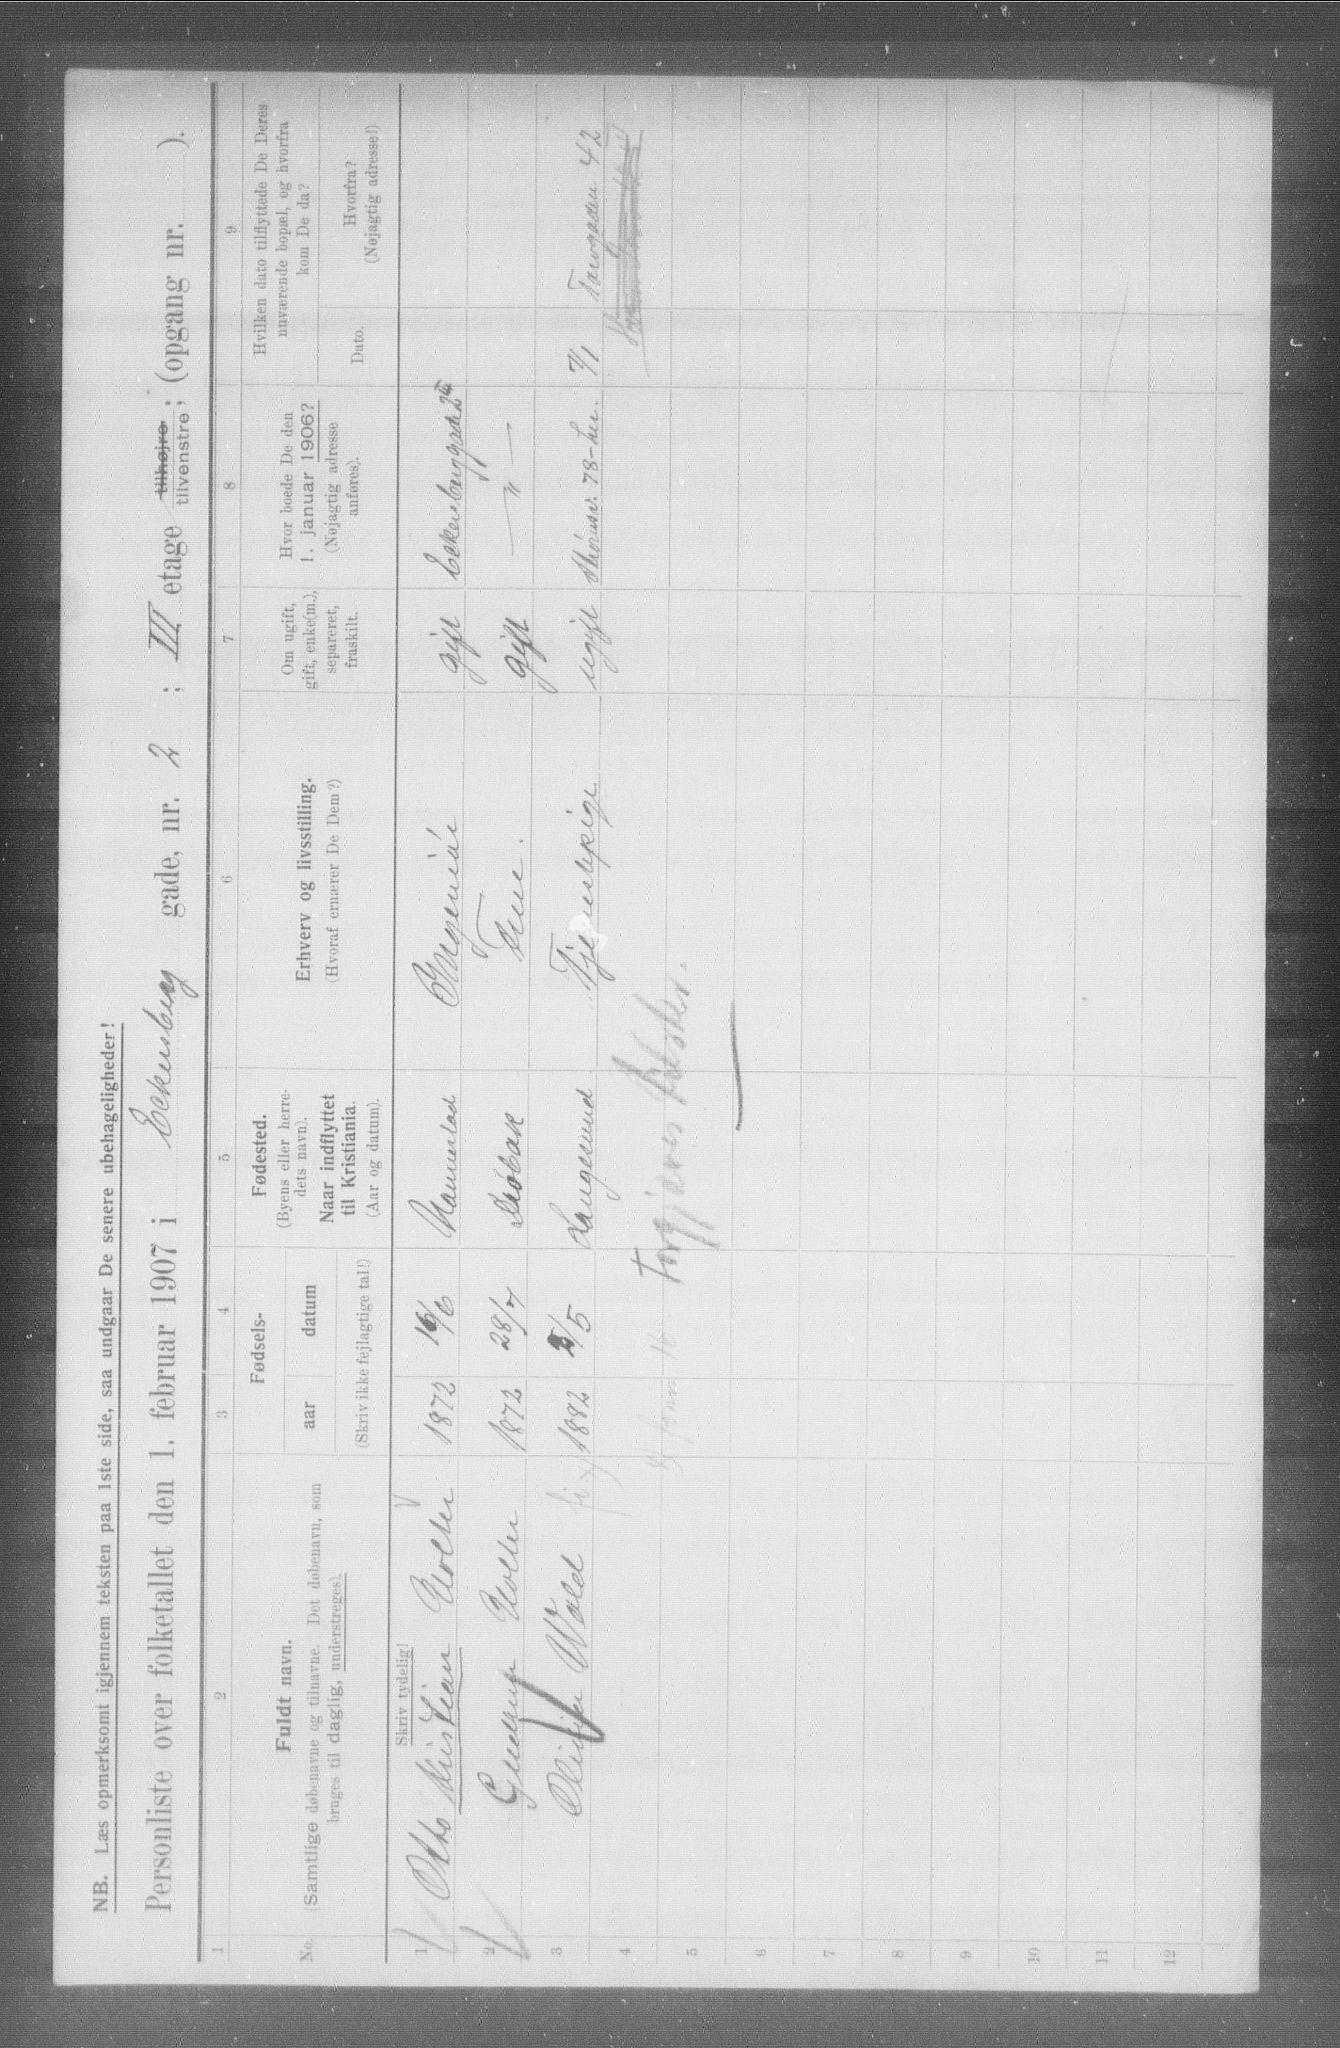 NB. Læs opmerksomt igjennem teksten paa 1ste side, saa undgaar De senere ubehageligheder!
Personliste over folketallet den 1. februar 1907 i Eckersberg gade, nr. 2 ; III etage tilhøjre tilvenstre ; (opgang nr. ).
1 2 3 4 5 6 7 8 9
No.
Fuldt navn.
(Samtlige døbenavne og tilnavne. Det døbenavn, som
bruges til daglig, understreges).
Fødsels-
aar datum
(Skriv ikke fejlagtige tal!)
Fødested.
(Byens eller herre-
dets navn).
Naar indflyttet
til Kristiania.
(Aar og datum).
Erhverv og livsstilling.
(Hvoraf ernærer De Dem?)
Om ugift,
gift, enke(m.),
separeret,
fraskilt.
Hvor boede De den
1. januar 1906?
(Nøjagtig adresse
anføres).
Hvilken dato tilflyttede De Deres
nuværende bopæl, og hvorfra
kom De da?
Dato.
Hvorfra?
(Nøjagtig adresse!)
Skriv tydelig!
1 Otto Kristian 1872 16/6 Ingeniør gift Eckersberggade 2
2 Gudrun 1872 28/7 Drøbak Frue. gift — " —
3 Wold 1882 /5 Langesund Tjenestepige ugift 78 7/1 42
4
5
6
7
8
9
10
11
12